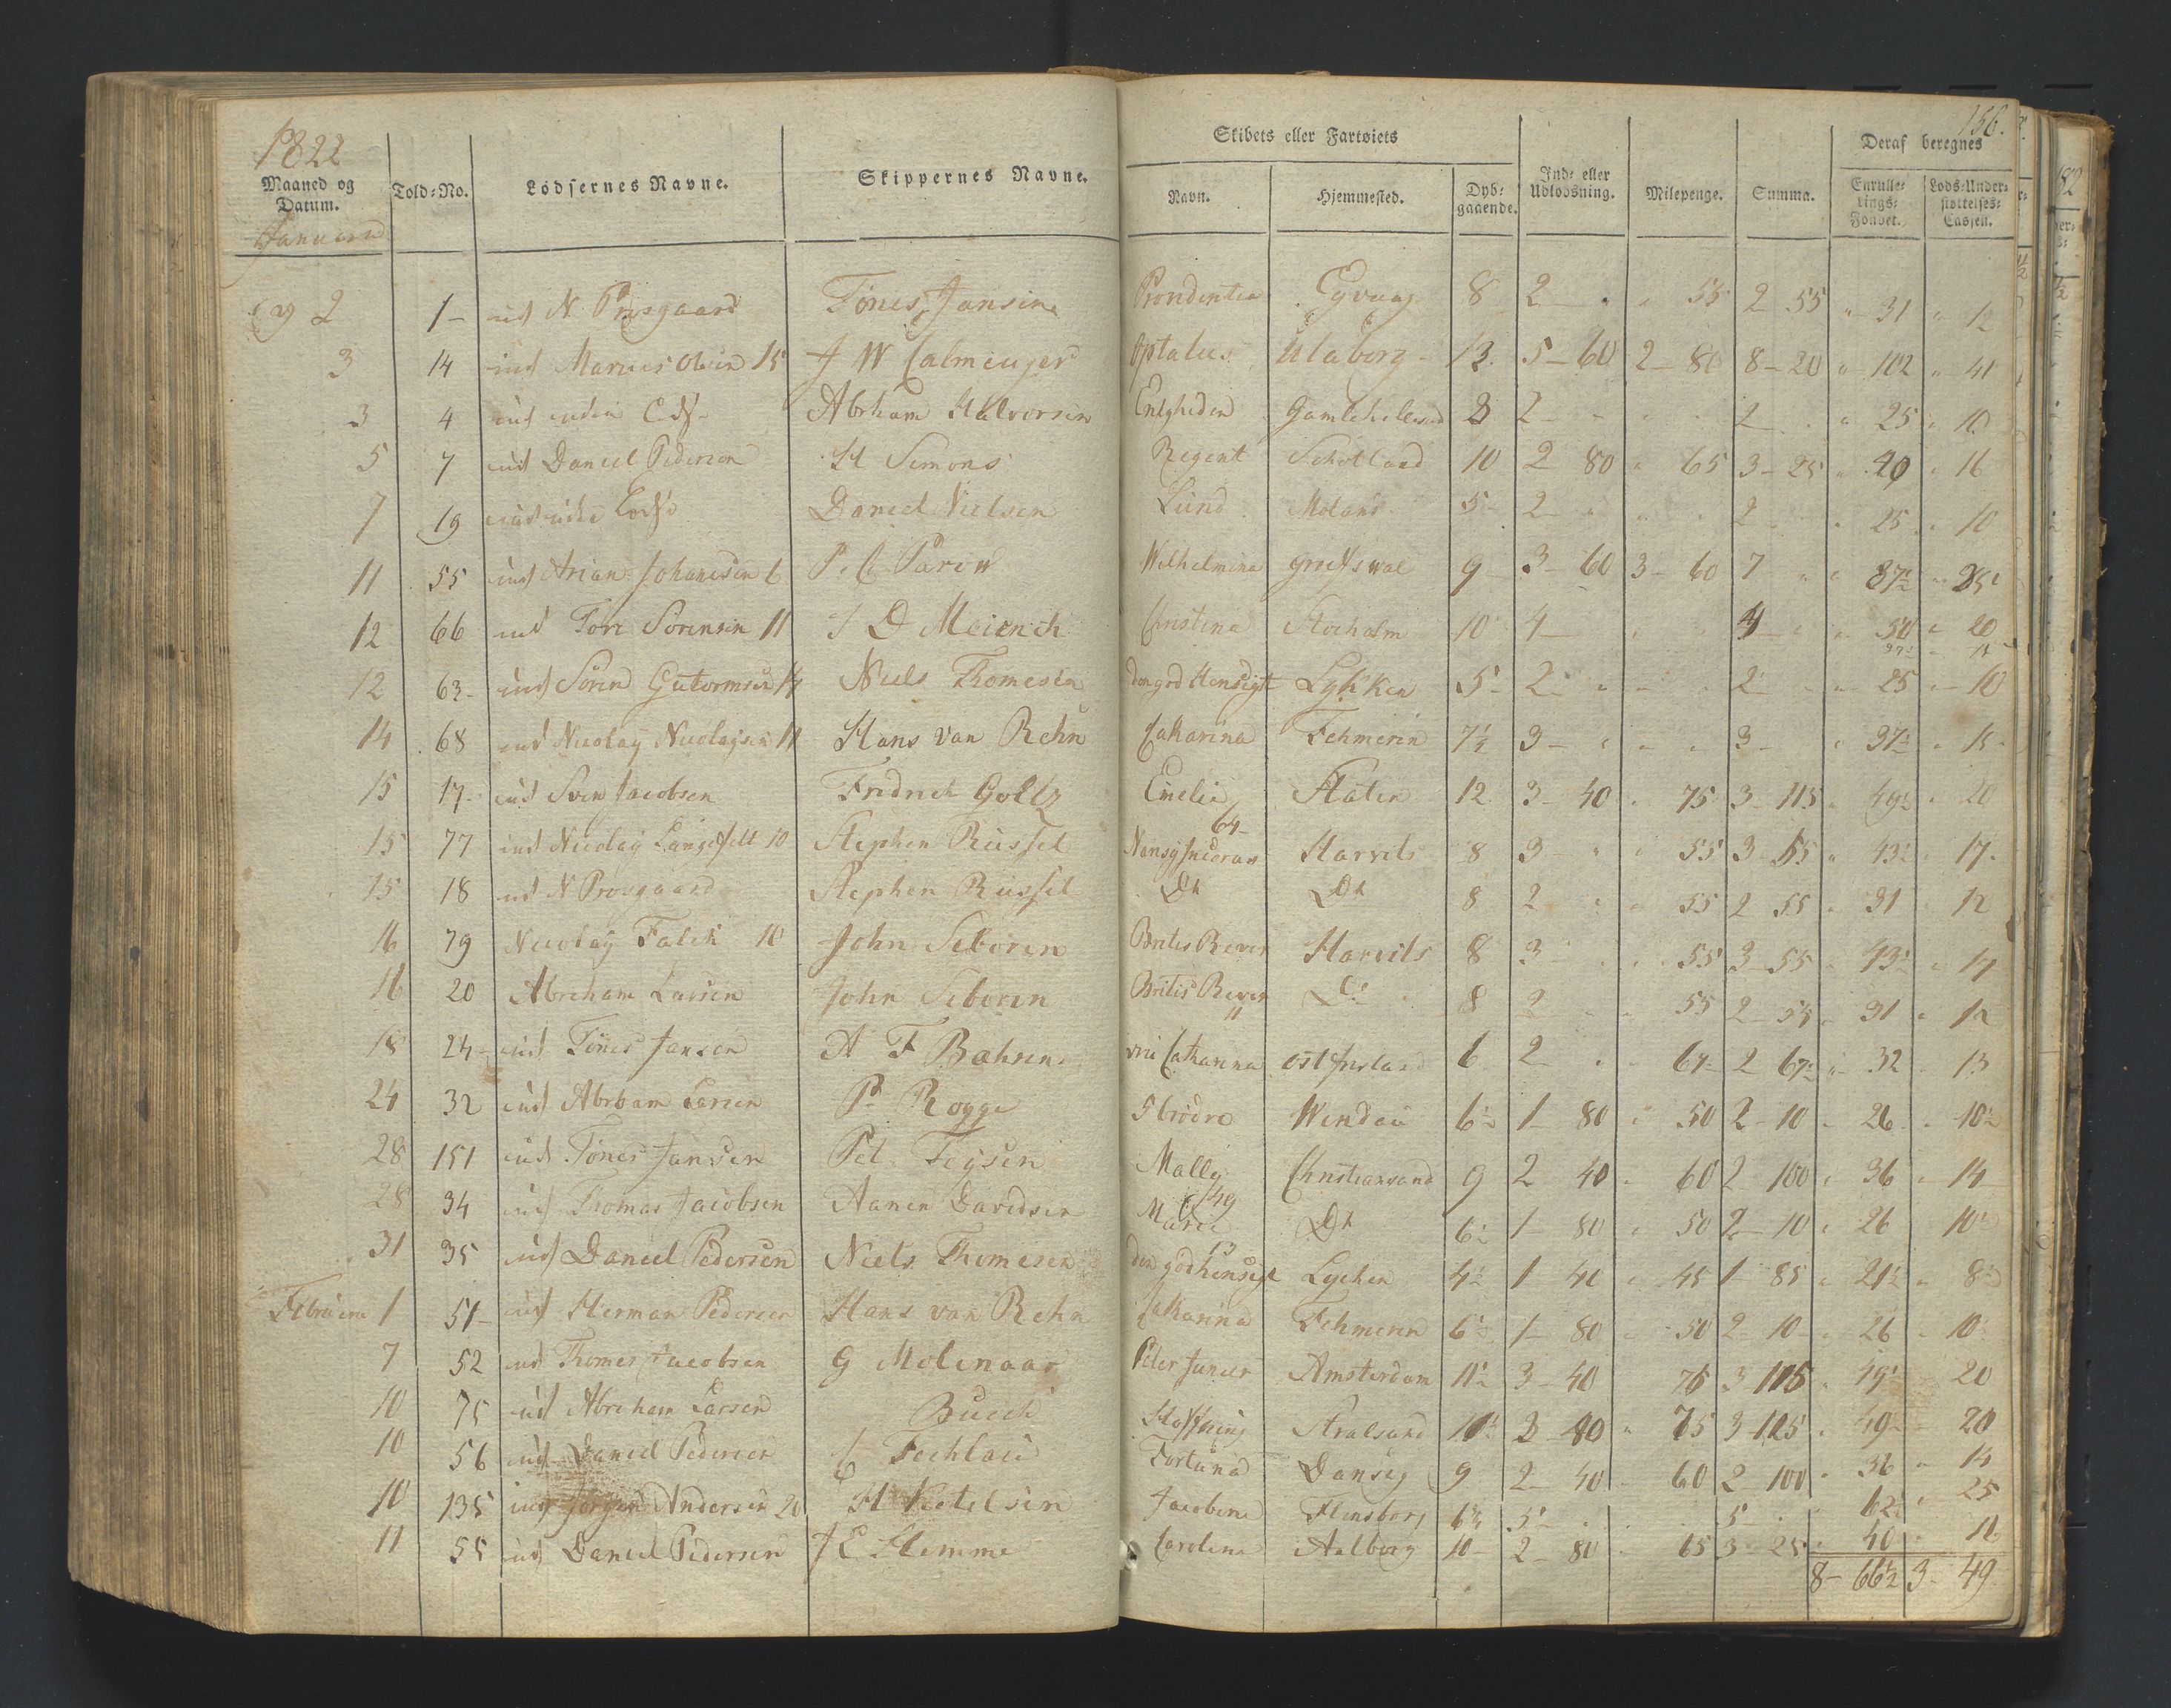 1822
156.
Maaned og Datum. Told-No. Lodsernes Navne. Skippernes Navne. Skibets eller Fartøiets Navn. Hjemmested. Dyb-gaaende. Ind- eller Udlodsning. Milepenge. Summa. Deraf beregnes Enrulle-rings-Fondet. Lods-Under-støttelses-Cassen.
Januari
2 1 ud N Prosgaard Tönes Jansen Prondentia Eyvaag 8 2 " " 55 2 55 " 31 " 12
3 14 ind Marcus Olsen 15 J W Calmeuger Optatus Ulaborg 13. 5 60 2 80 8 20 " 102 " 41
3 4 ud uden Abrham Halvorsen Enigheden Gamlehellesund 3 2 2 " 25 " 10
5 7 ud Daniel Pedersen H Simons Regent Schotland 10 2 80 " 65 3 25 " 40 " 16
7 19 ud uden Lods Daniel Nielsen Lund Molans 5 2 2 " 25 " 10
11 55 ind Arian Johanesen 6 P. C Parow Wilhelmina greifswal 9 3 60 3 60 7 " " 87½
12 66 ind Tore Sörensen 11 J D Meienck Christina Stocholm 10 4 4 50 20
12 63 ind Sören Gutormsen 14 Niels Thomesen den god Hensigt Lykken 5 2 2 25 10
14 68 ind Nicolay Nicolaysen 11 Hans van Rehn Catharina Fehmeren 7½ 3 3 37½ 15
15 17 ud Sven Jacobsen Fredrich Goltz Emelie Statin 12 3 40 75 3 115 49½ 20
15 77 ind Nicolay Langefeldt 10 Stephen Russel Nansy 64 Harvits 8 3 55 3 55 43½ 17
15 18 ud N Prosgaard Stephen Russel Do Do 8 2 55 2 55 31 12
16 79 Nicolay Falch 10 John Seboren Britis Rever Harvits 8 3 55 3 55 43½ 17
16 20 Abreham Larsen John Seboren Britis Rever Do 8 2 55 2 55 31 12
18 24 ud Tönes Jansen A F Bahsen vrù Catharina ostfrisland 6 2 67 2 67 32 13
24 32 ud Abrham Larsen P. Rogge 5 brödre Wendau 6½ 1 80 50 2 10 26 10½
28 151 ud Tönes Jansen Pet Teysen Mally Christiansand 9 2 40 60 2 100 36 14
28 34 ud Thomas Jacobsen Aanen Davidsen Marie 149 Do 6½ 1 80 50 2 10 26 10½
31 35 ud Daniel Pedersen Niels Thomesen den god hensigt 13 Lycken 4½ 1 40 45 1 85 21½ 8½
Februari 1 51 ud Herman Pedersen Hans van Rehn Catharina Fehmeren 6½ 1 80 50 2 10 26 10½
7 52 ud Thomes Jacobsen G Molenaar Peter Junier Amsterdam 11½ 3 40 75 3 115 49½ 20
10 75 ud Abreham Larsen Bueck Hoffning Stralsund 11½ 3 40 75 3 115 49½ 20
10 56 ud Daniel Pedersen C Fechlau Fortuna Dansig 9 2 40 60 2 100 36 14
10 135 ind Jörgen Andersen 20 H Ketelsen Jacobine Flensborg 6½ 5 5 62½ 25
11 55 ud Daniel Pedersen J E Hemme Caroline Aalborg 10 2 80 65 3 25 40 16
8 66½ 3 49